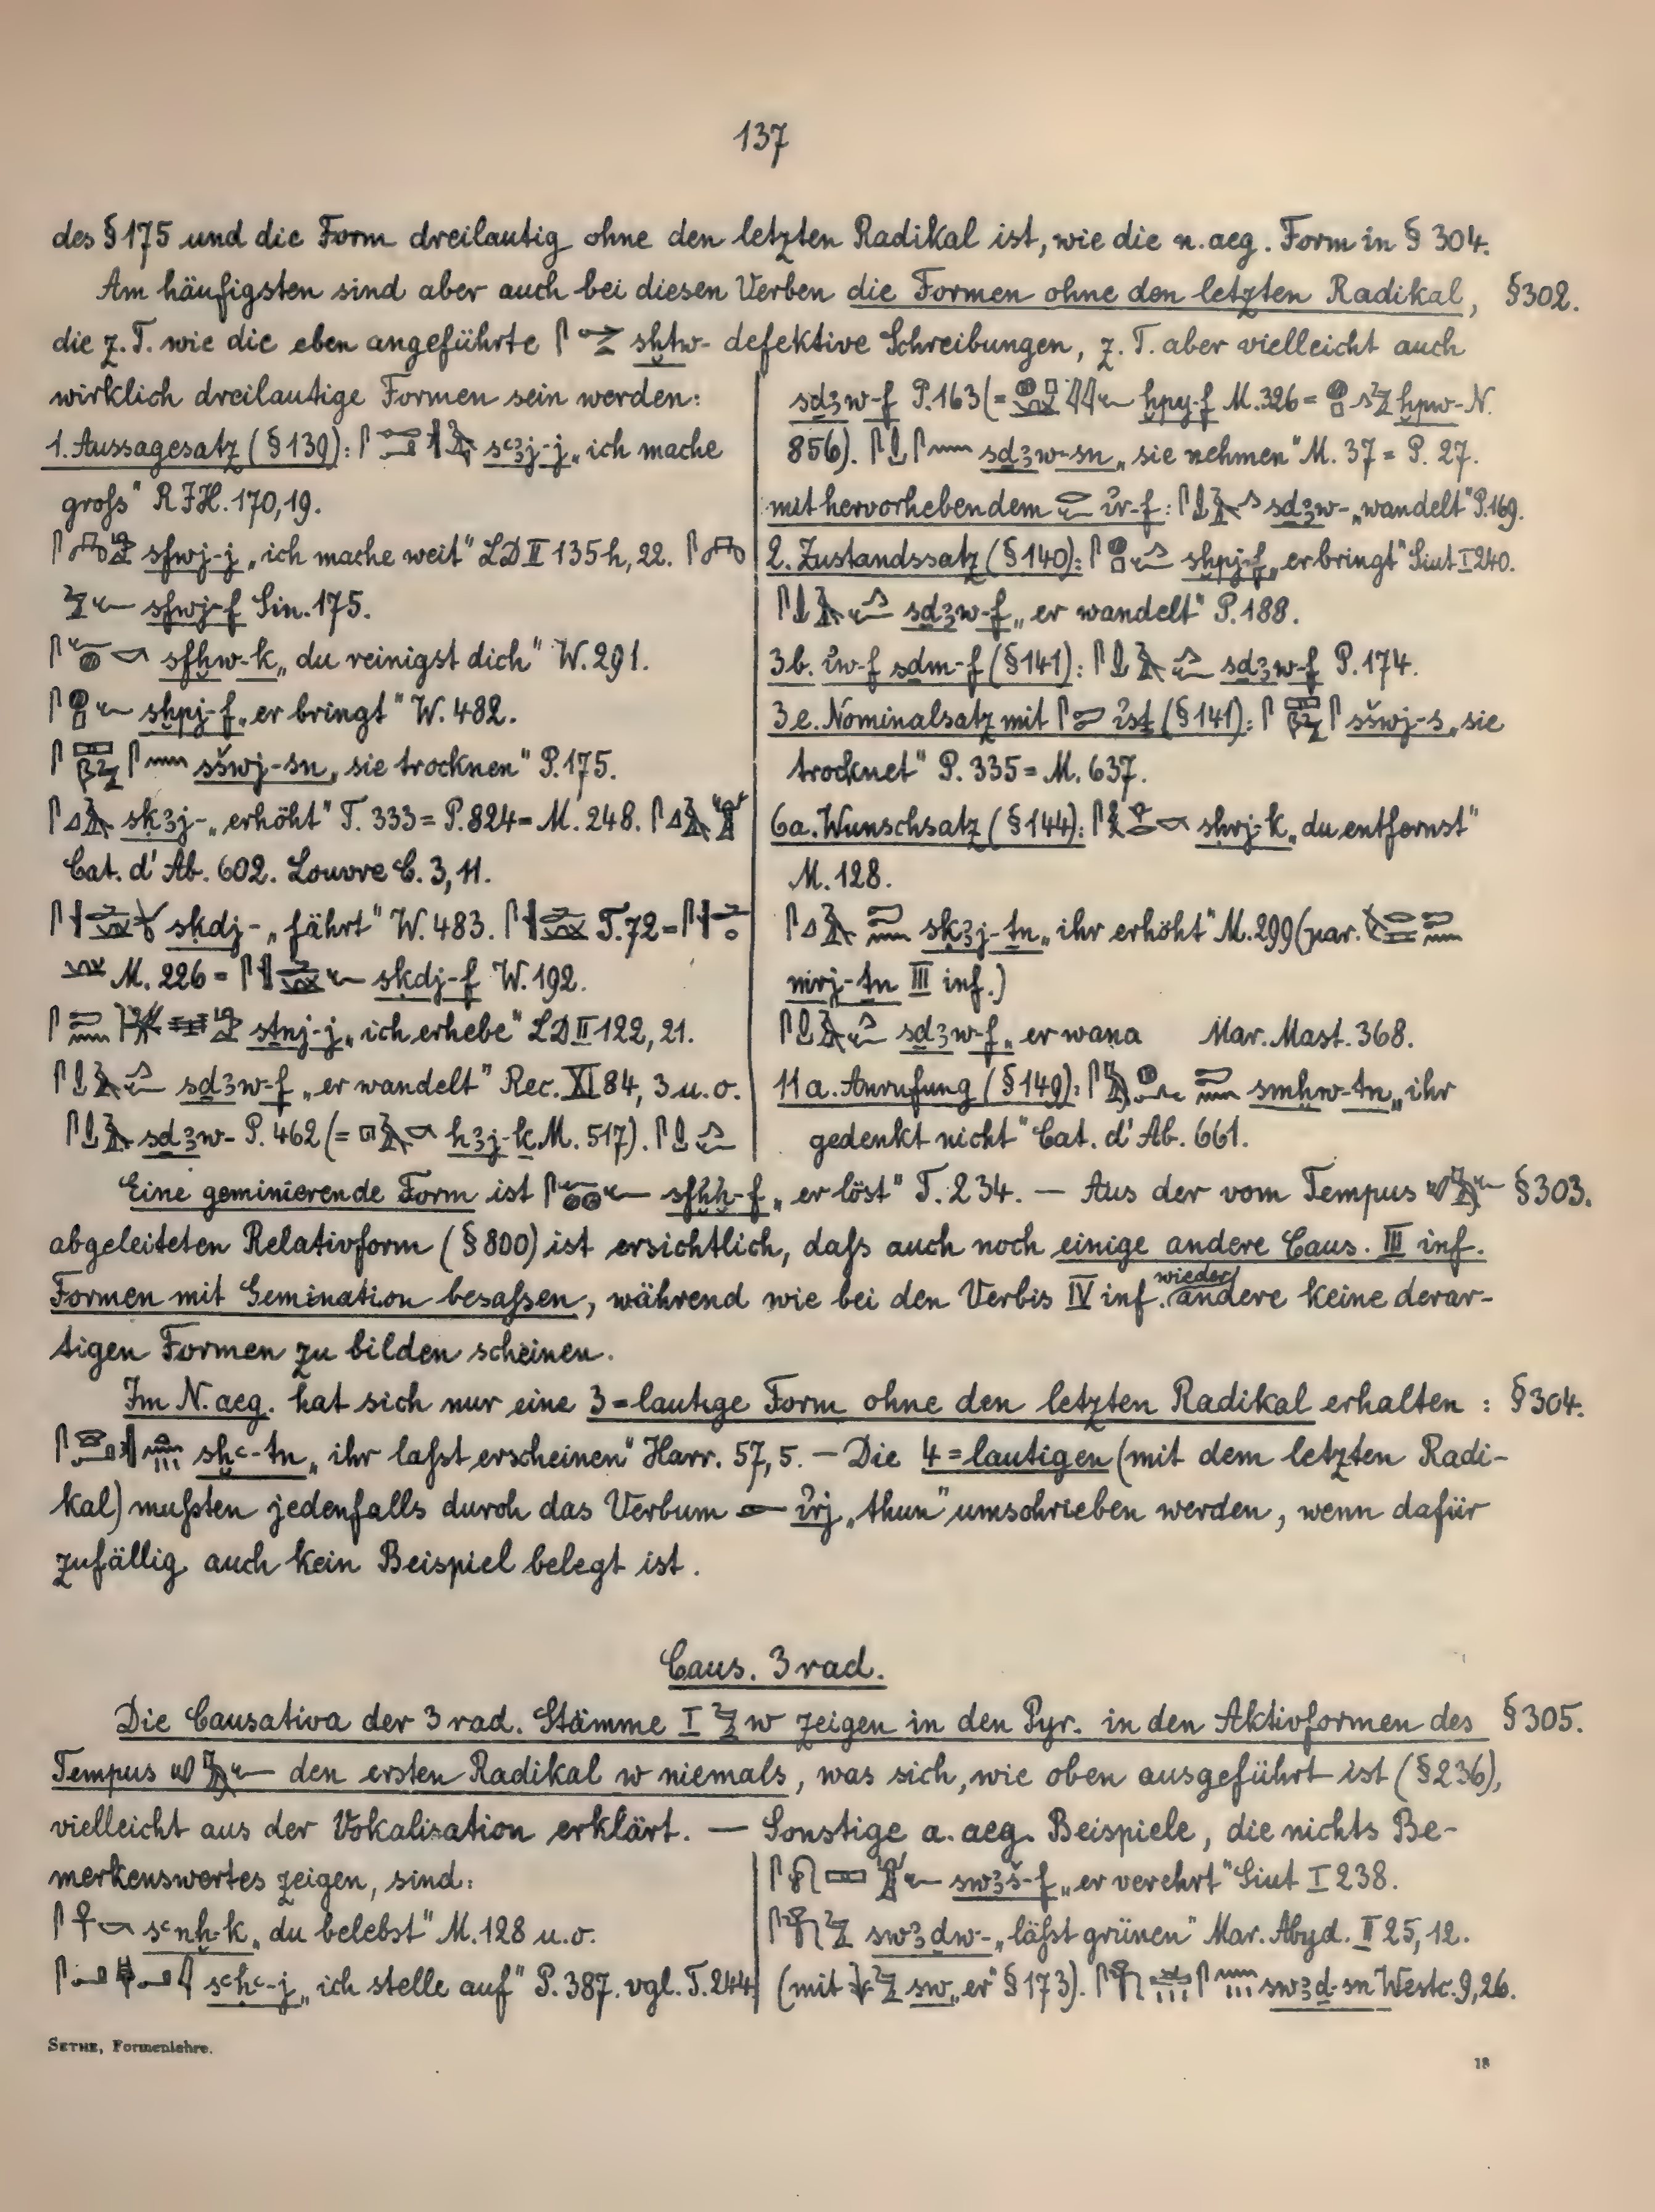 137
des § 175 und die Form dreilautig ohne den letzten Radikal ist, wie die n. aeg. Form in § 304.
Am häufigsten sind aber auch bei diesen Verben die Formen ohne den letzten Radikal, § 302.
die z. T. wie die eben angeführte sḫtw- defektive Schreibungen, z. T. aber vielleicht auch
wirklich dreilautige Formen sein werden:
1. Aussagesatz (§ 139): sꜥꜣj-j „ich mache
groſs" RIH. 170,19.
sfwj-j „ich mache weit" LD II 135h, 22.
sfwj-f Sin. 175.
sfḫw-k „du reinigst dich" W. 291.
sḫpj-f „er bringt" W. 482.
sšwj-sn „sie trocknen" P. 175.
sḳꜣj- „erhöht" T. 333 = P. 824 = M. 248.
Cat. d'Ab. 602. Louvre C. 3, 11.
sḳdj- „fährt" W. 483. T. 72 =
M. 226 = sḳdj-f W. 192.
sṯnj-j „ich erhebe" LD II 122, 21.
sḏꜣw-f „er wandelt" Rec. XI 84, 3 u. o.
sḏꜣw- P. 462 (= hꜣj-k M. 517).
sḏꜣw-f P. 163 (= ḫpy-f M. 326 = ḫpw- N.
856). sḏꜣw-sn „sie nehmen" M. 37 = P. 27.
mit hervorhebendem ỉr-f: sḏꜣw- „wandelt" P. 169.
2. Zustandssatz (§ 140): sḫpj-f „er bringt" Siut I 240.
sḏꜣw-f „er wandelt" P. 188.
3b. ỉw-f sḏm-f (§ 141): sḏꜣw-f P. 174.
3e. Nominalsatz mit ỉsṯ (§ 141): sšwj-s „sie
trocknet" P. 335 = M. 637.
6a. Wunschsatz (§ 144): sḥrj-k „du entfernst"
M. 128.
sḳꜣj-ṯn „ihr erhöht" M. 299 (par.
mrj-ṯn III inf.)
sḏꜣw-f „er wana Mar. Mast. 368.
11a. Anrufung (§ 149): smḫw-ṯn „ihr
gedenkt nicht" Cat. d'Ab. 661.
Eine geminierende Form ist sfḫḫ-f „er löst" T. 234. — Aus der vom Tempus § 303.
abgeleiteten Relativform (§ 800) ist ersichtlich, daſs auch noch einige andere Caus. III inf.
Formen mit Gemination besaſsen, während wie bei den Verbis IV inf. wieder andere keine derar-
tigen Formen zu bilden scheinen.
Im N. aeg. hat sich nur eine 3=lautige Form ohne den letzten Radikal erhalten: § 304.
sḫꜥ-tn „ihr laſst erscheinen" Harr. 57, 5. — Die 4=lautigen (mit dem letzten Radi-
kal) muſsten jedenfalls durch das Verbum ỉrj „thun" umschrieben werden, wenn dafür
zufällig auch kein Beispiel belegt ist.
Caus. 3 rad.
Die Causativa der 3 rad. Stämme I w zeigen in den Pyr. in den Aktivformen des § 305.
Tempus den ersten Radikal w niemals, was sich, wie oben ausgeführt ist (§ 236),
vielleicht aus der Vokalisation erklärt. — Sonstige a. aeg. Beispiele, die nichts Be-
merkenswertes zeigen, sind:
sꜥnḫ-k „du belebst" M. 128 u. o.
sꜥḥꜥ-j „ich stelle auf" P. 387. vgl. T. 244
swꜣš-f „er verehrt" Siut I 238.
swꜣḏw- „läſst grünen" Mar. Abyd. II 25, 12.
(mit sw „er" § 173). swꜣḏ-sn Westc. 9, 26.
SETHE, Formenlehre.
18